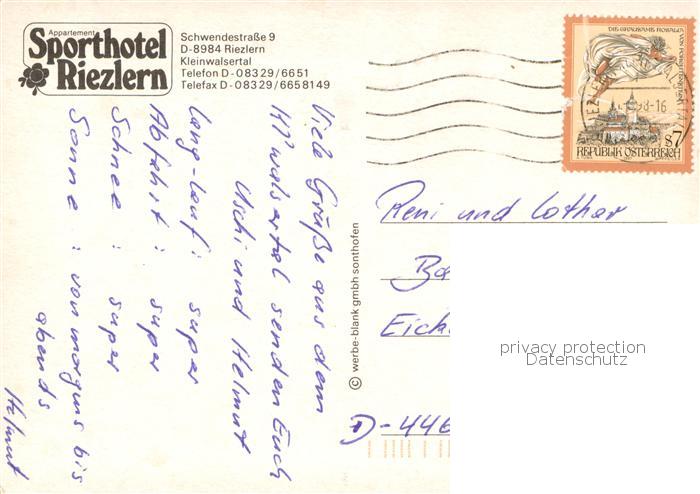 Appartement
Sporthotel
Riezlern
Schwendestraße 9
D-8984 Riezlern
Kleinwalsertal
Telefon D-08329/6651
Telefax D-08329/6658149
Viele Grüße aus dem
Kl' walsertal senden Euch
Uschi und Helmut
Lang-lauf: super
Abfahrt: super
Schnee: super
Sonne: von morgens bis
abends
Helmut
© werbe-blank gmbh sonthofen
DIE GRAUSAME ROSALIA VON FORCHTENSTEIN
98-16
s7
REPUBLIK ÖSTERREICH
Reni und Lothar
Ba
Eick
D-446
privacy protection
Datenschutz